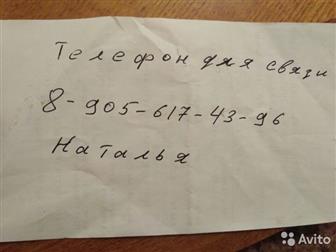 Телефон для связи
8-905-617-43-96
Наталья
Avito